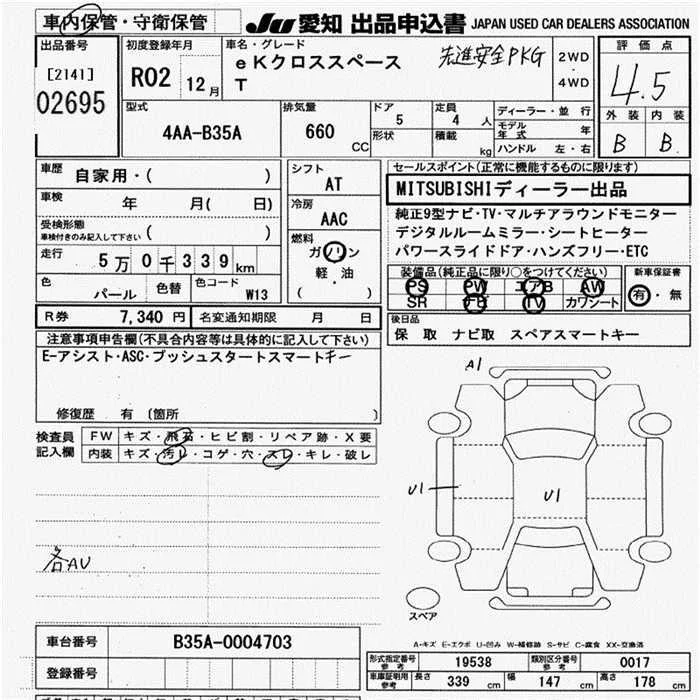 車内保管・守衛保管
JU 愛知 出品申込書 JAPAN USED CAR DEALERS ASSOCIATION
出品番号
[2141]
02695
初度登録年月
R02 12月
車名・グレード
eKクロススペース
T
先進安全PKG
2WD
・
4WD
評価点
4.5
外装 内装
B B
型式
4AA-B35A
排気量
660 CC
ドア
5
形状
定員
4 人
積載
kg
ディーラー・並行
モデル年式 年
ハンドル 左・右
車歴
自家用・( )
車検
年 月( 日)
受検形態
車検付きのみ記入して下さい ( )
走行
5万0千339km
色
パール
色替
色コード
W13
シフト
AT
冷房
AAC
燃料
ガソリン
軽・油
( )
セールスポイント(正常に機能するものに限ります)
MITSUBISHIディーラー出品
純正9型ナビ・TV・マルチアラウンドモニター
デジタルルームミラー・シートヒーター
パワースライドドア・ハンズフリー・ETC
装備品(純正品に限り○をつけてください)
PS PW エアB AW
SR FB TV カワシート
新車保証書
有・無
R券 7,340円 名変通知期限 月 日
後日品
保 取 ナビ取 スペアスマートキー
注意事項申告欄(不具合内容等は具体的に記入して下さい)
E-アシスト・ASC・プッシュスタートスマートキー
修復歴 有 〔箇所 〕
検査員
記入欄
FW キズ・飛石・ヒビ割・リペア跡・X要
内装 キズ・汚レ・コゲ・穴・スレ・キレ・破レ
A1
U1
U1
各AU
スペア
A-キズ E-エクボ U-凹み W-補修跡 S-サビ C-腐食 XX-交換済
車台番号 B35A-0004703
登録番号
形式指定番号
参考
19538
類別区分番号
参考
0017
車庫証明用
参考
長さ 339 cm 幅 147 cm 高さ 178 cm